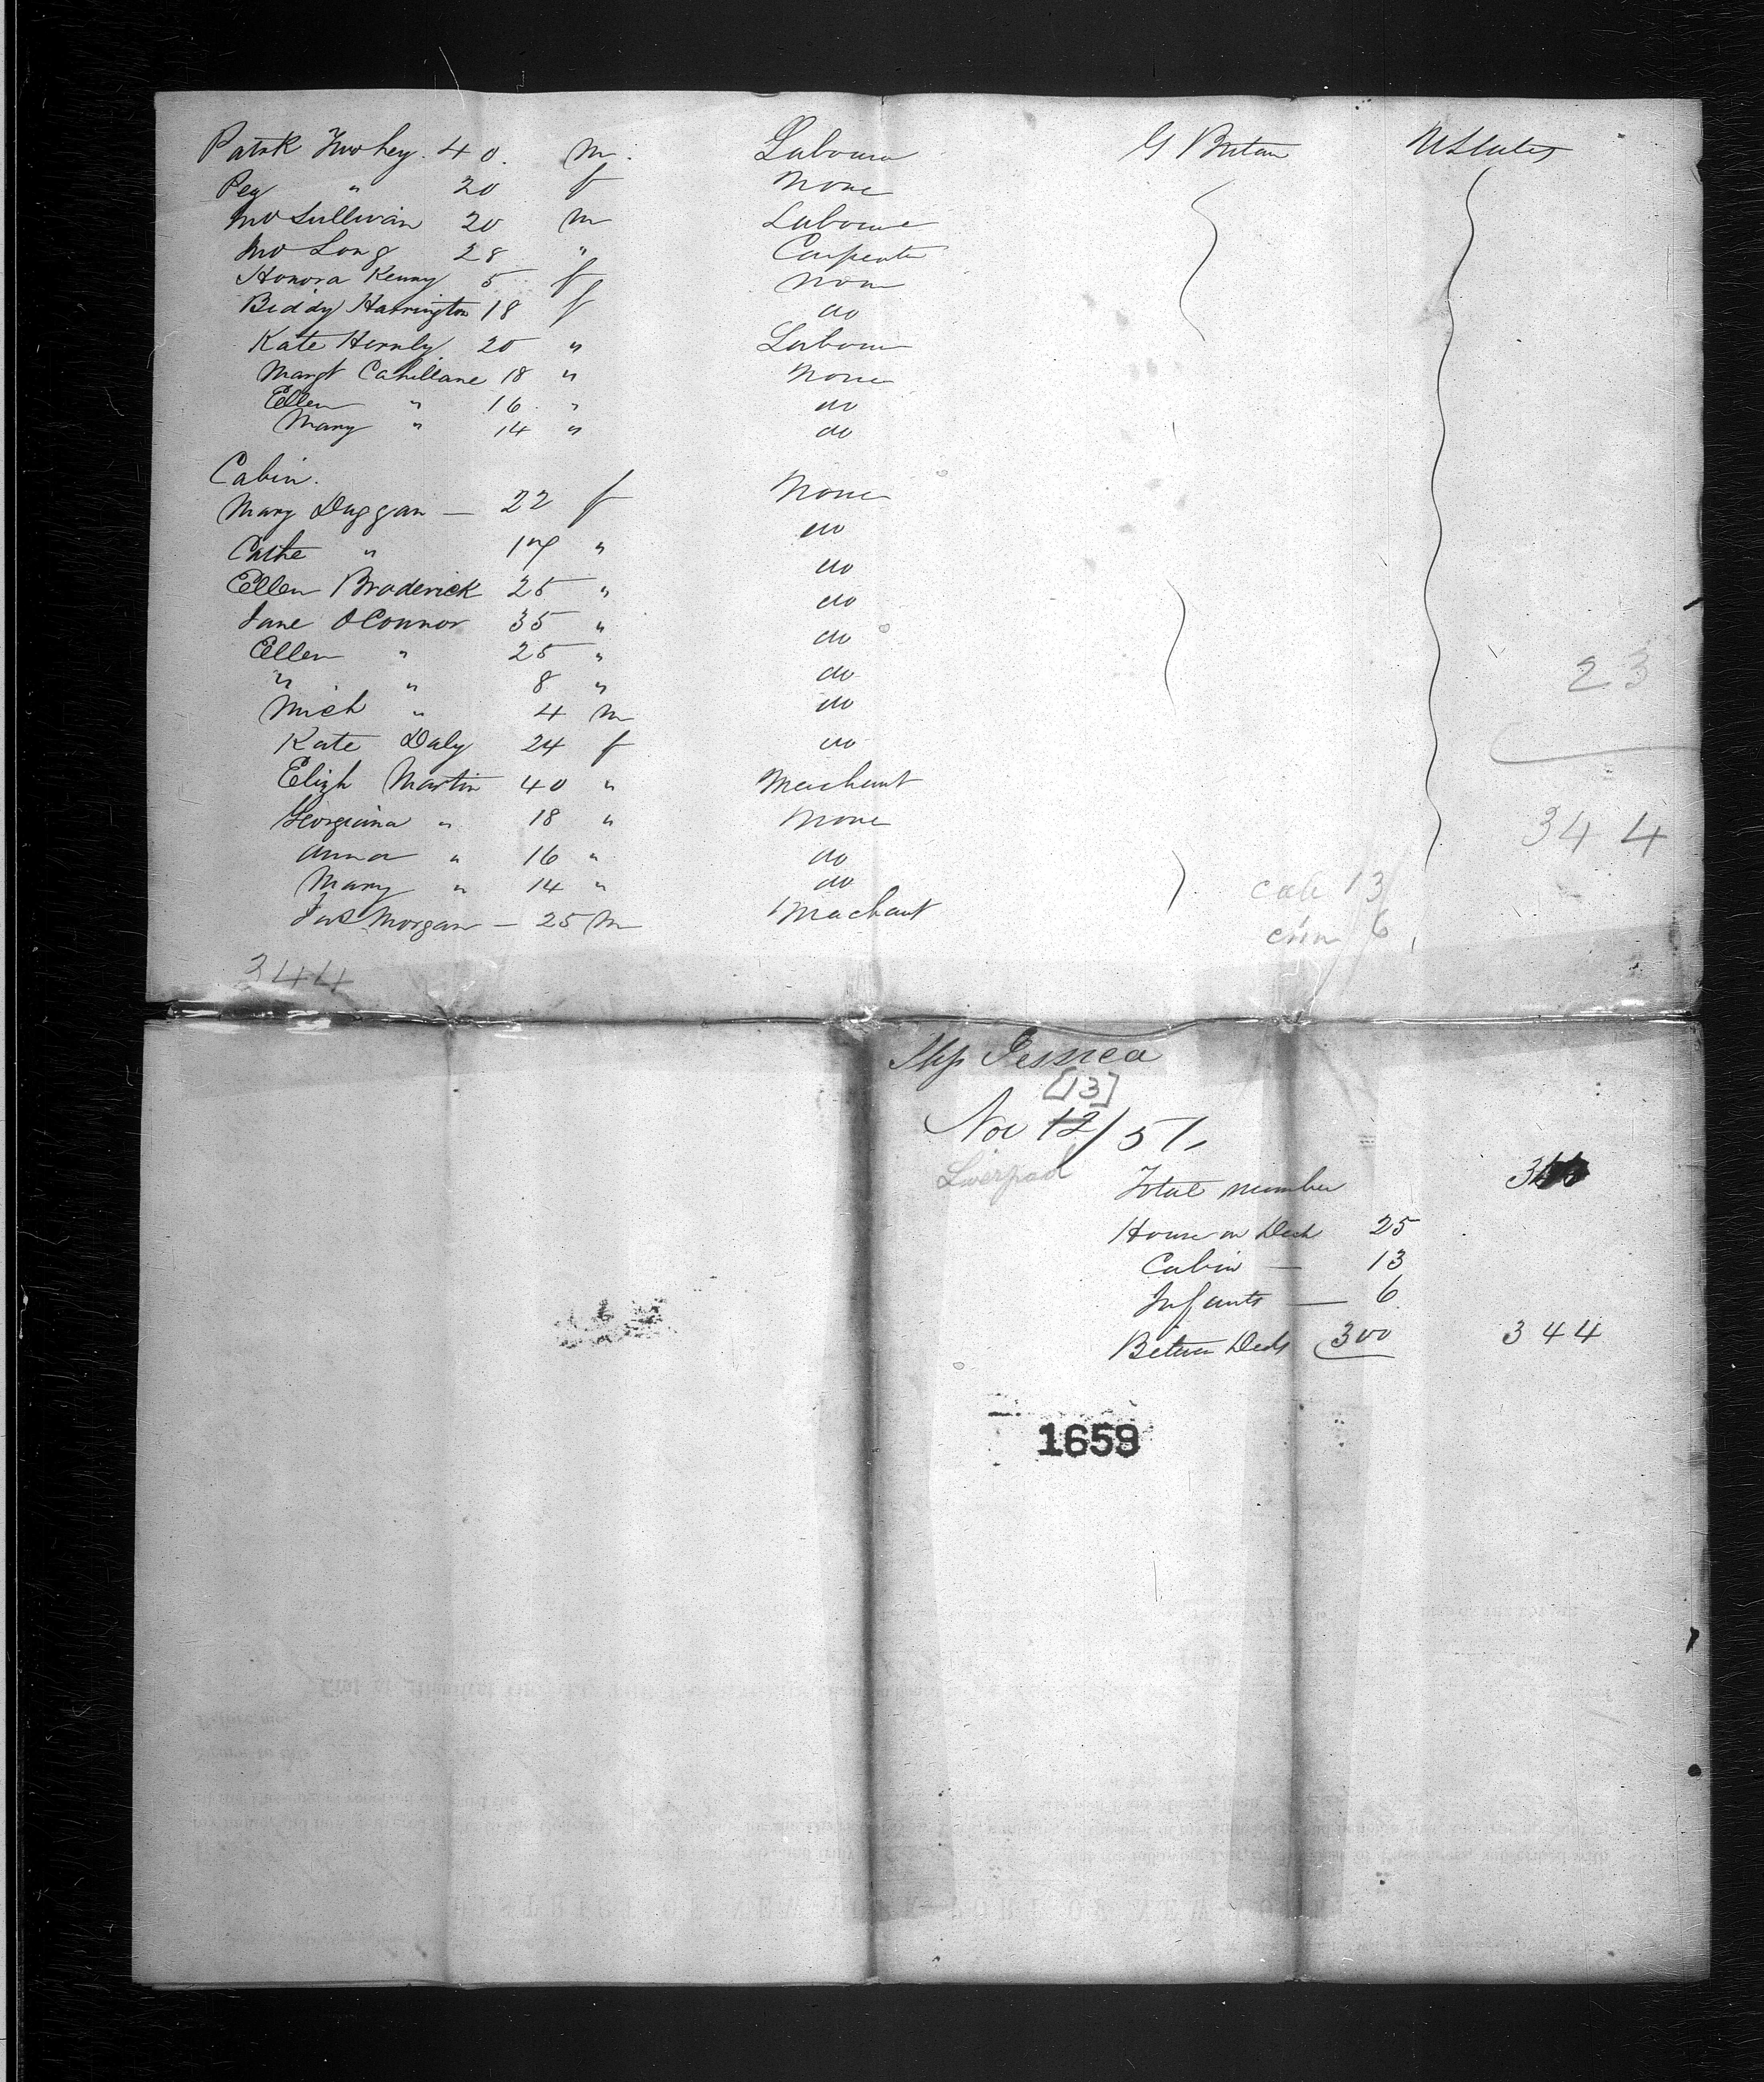 Patrk Twohey. 40. m. Labourer G Britain U States
Peg " 20 f None
Mo Sullivan 20 m Labourer
Mo Long 28 " Carpenter
Honora Kenny 5 f None
Biddy Harrington 18 f do
Kate Hernly 20 " Labourer
Margt Cahillane 18 " None
Ellen " 16 " do
Mary " 14 " do
Cabin.
Mary Duggan — 22 f None
Cathe " 17 " do
Ellen Broderick 25 " do
Jane OConnor 35 " do
Ellen " 25 " do
" " 8 " do
Mich " 4 m do
Kate Daly 24 f do
Elizh Martin 40 " Merchant
Georgiana " 18 " None
Anna " 16 " do
Mary " 14 " do
Jas Morgan — 25 m Merchant
23
344
cab 13
6
344
Shp Jessica
[13]
Nov 12/51.
Liverpool
Total number
House on Deck 25
Cabin — 13
Infants — 6
Between Decks 300 344
1659